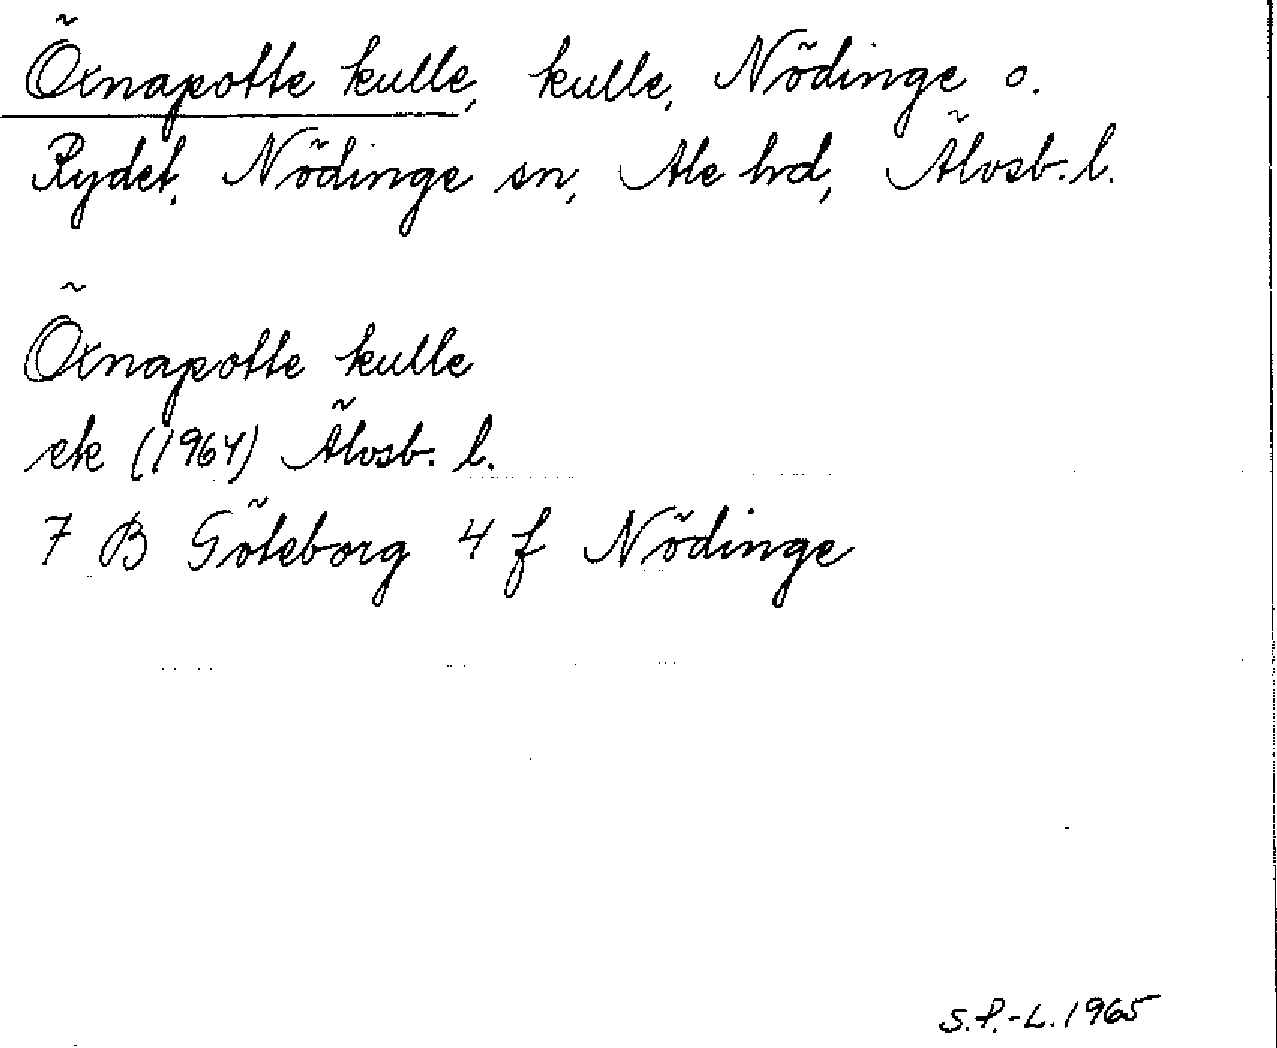 Öxnapotte kulle, kulle, Nödinge o.
Rydet, Nödinge sn, Ale hd, Älvsb. l.
Öxnapotte kulle
ek (1964) Älvsb. l.
7 B Göteborg 4 f Nödinge
S.P.-L. 1965